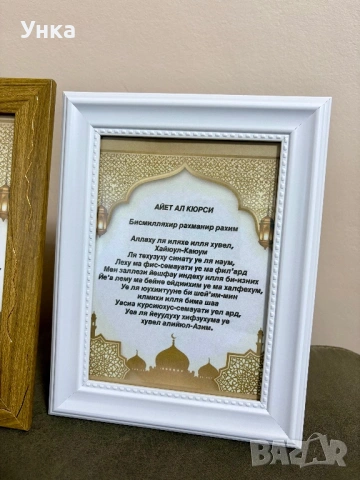 Унка
АЙЕТ АЛ КЮРСИ
Бисмилляхир рахманир рахим
Аллаху ля иляхе илля хувел,
Хайюул-Каюум
Ля техузуху синату уе ля наум,
Леху ма фис-семауати уе ма фил'ард
Мен заллези йешфау индеху илля би-изних
Йе'а лему ма бейне ейдиихим уе ма халфехум,
Уе ля юухиитууне би шей'им-мин
илмихи илля бима шаа
Уесиа курсиюхус-семауати уел ард,
Уее ля йеуудуху хифзухума уе
хувел алийюл-Азим.
BAZAR
bg